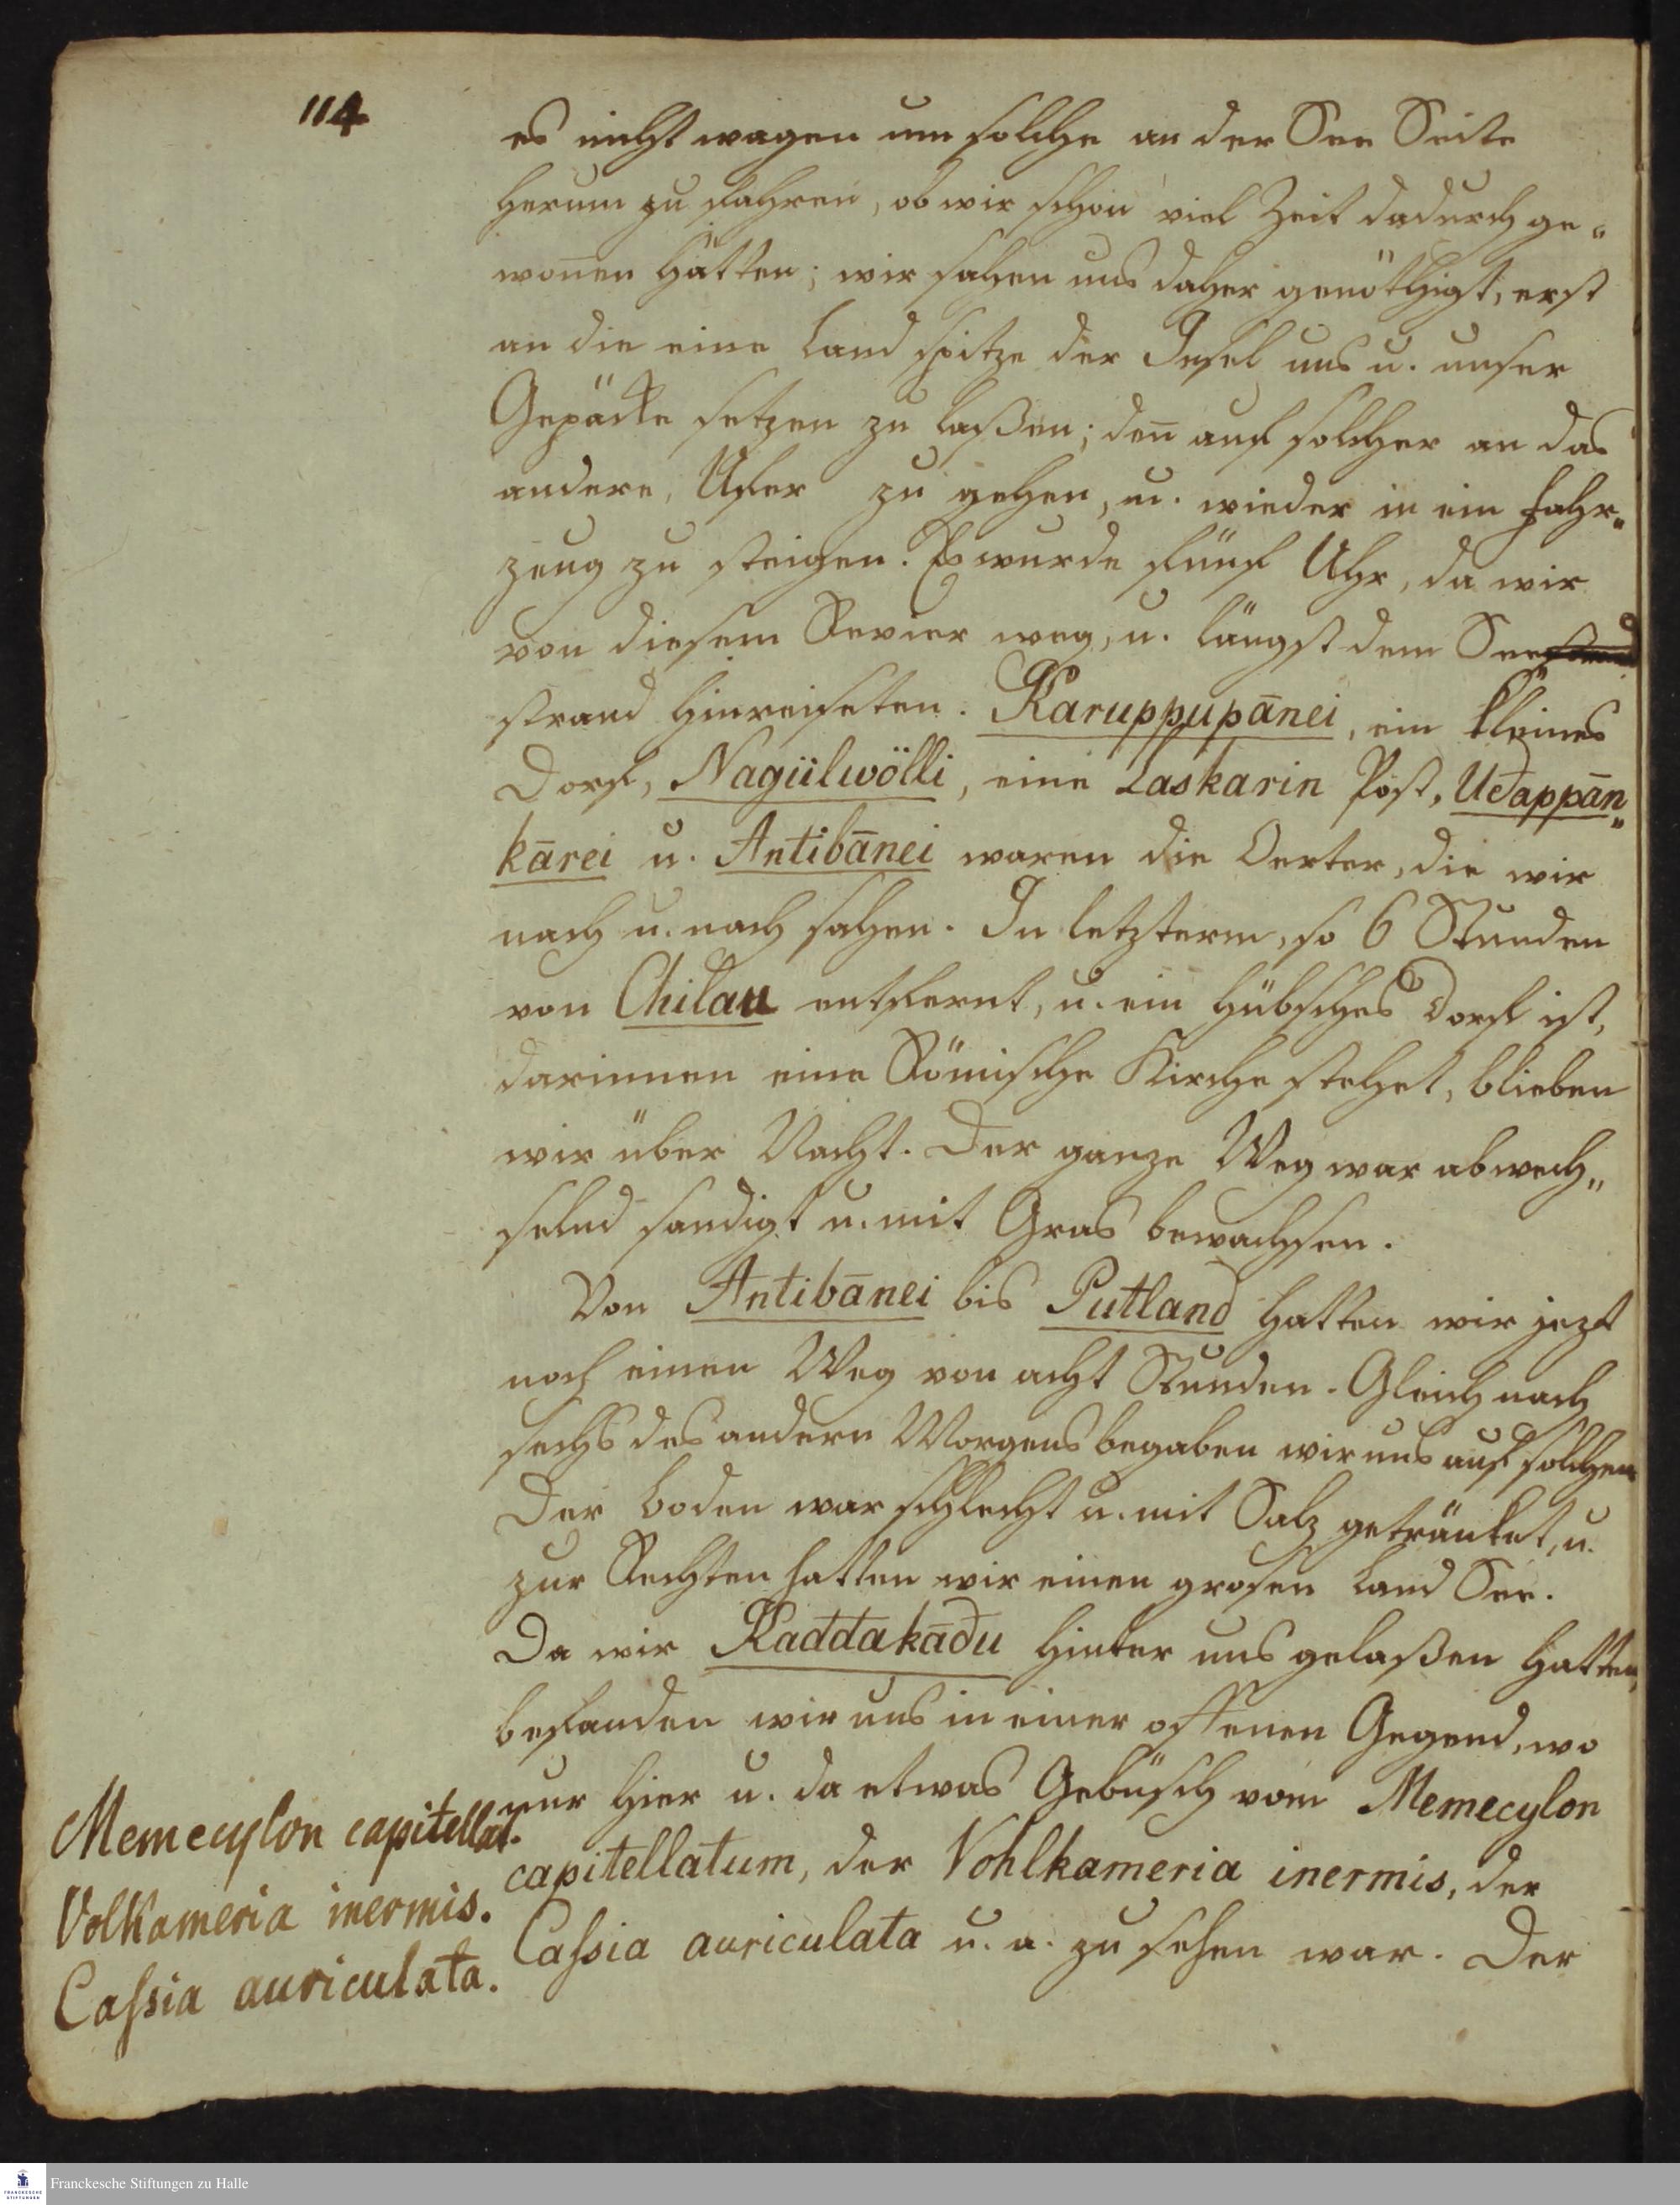 114
es nicht wagen um solche an der See Seite
herum zu fahren, ob wir schon viel Zeit dadurch ge„
woñen hätten; wir sahen uns daher genöthigt, erst
an die eine Land spitze der Insel uns u. unser
Gepäcke setzen zu laßen; deñ auf solcher an das
andere, Ufer zu gehen, u. wieder in ein Fahr„
zeug zu steigen. Es wurde fünf Uhr, da wir
von diesem Revier weg, u. längst dem See
strand hinreiseten. Karuppupānei, ein kleines
Dorf, Nagülwölli, eine Laskarin Post, Udappān„
kārei u. Antibānei waren die Oerter, die wir
nach u. nach sahen. In letzterm, so 6 Stunden
von Chilau entfernt, u. ein hübsches Dorf ist,
darinnen eine Römische Kirche stehet, blieben
wir über Nacht. Der ganze Weg war abwech„
selnd sandigt u. mit Gras bewachsen.
Von Antibānei bis Putland hatten wir jezt
noch einen Weg von acht Stunden. Gleich nach
sechs des andern Morgens begaben wir uns auf solchen
Der Boden war schlecht u. mit Salz getränket, u.
zur Rechten hatten wir einen grosen Land See.
Da wir Kaddakādu hinter uns gelaßen hatten,
befanden wir uns in einer offenen Gegend, wo
nur hier u. da etwas Gebüsch vom Memecylon
capitellatum, der Vohlkameria inermis, der
Caſsia auriculata u. a. zu sehen war. Der
Memecylon capitellat.
Volkameria inermis.
Caſsia auriculata.
Franckesche Stiftungen zu Halle
FRANCKESCHE
STIFTUNGEN